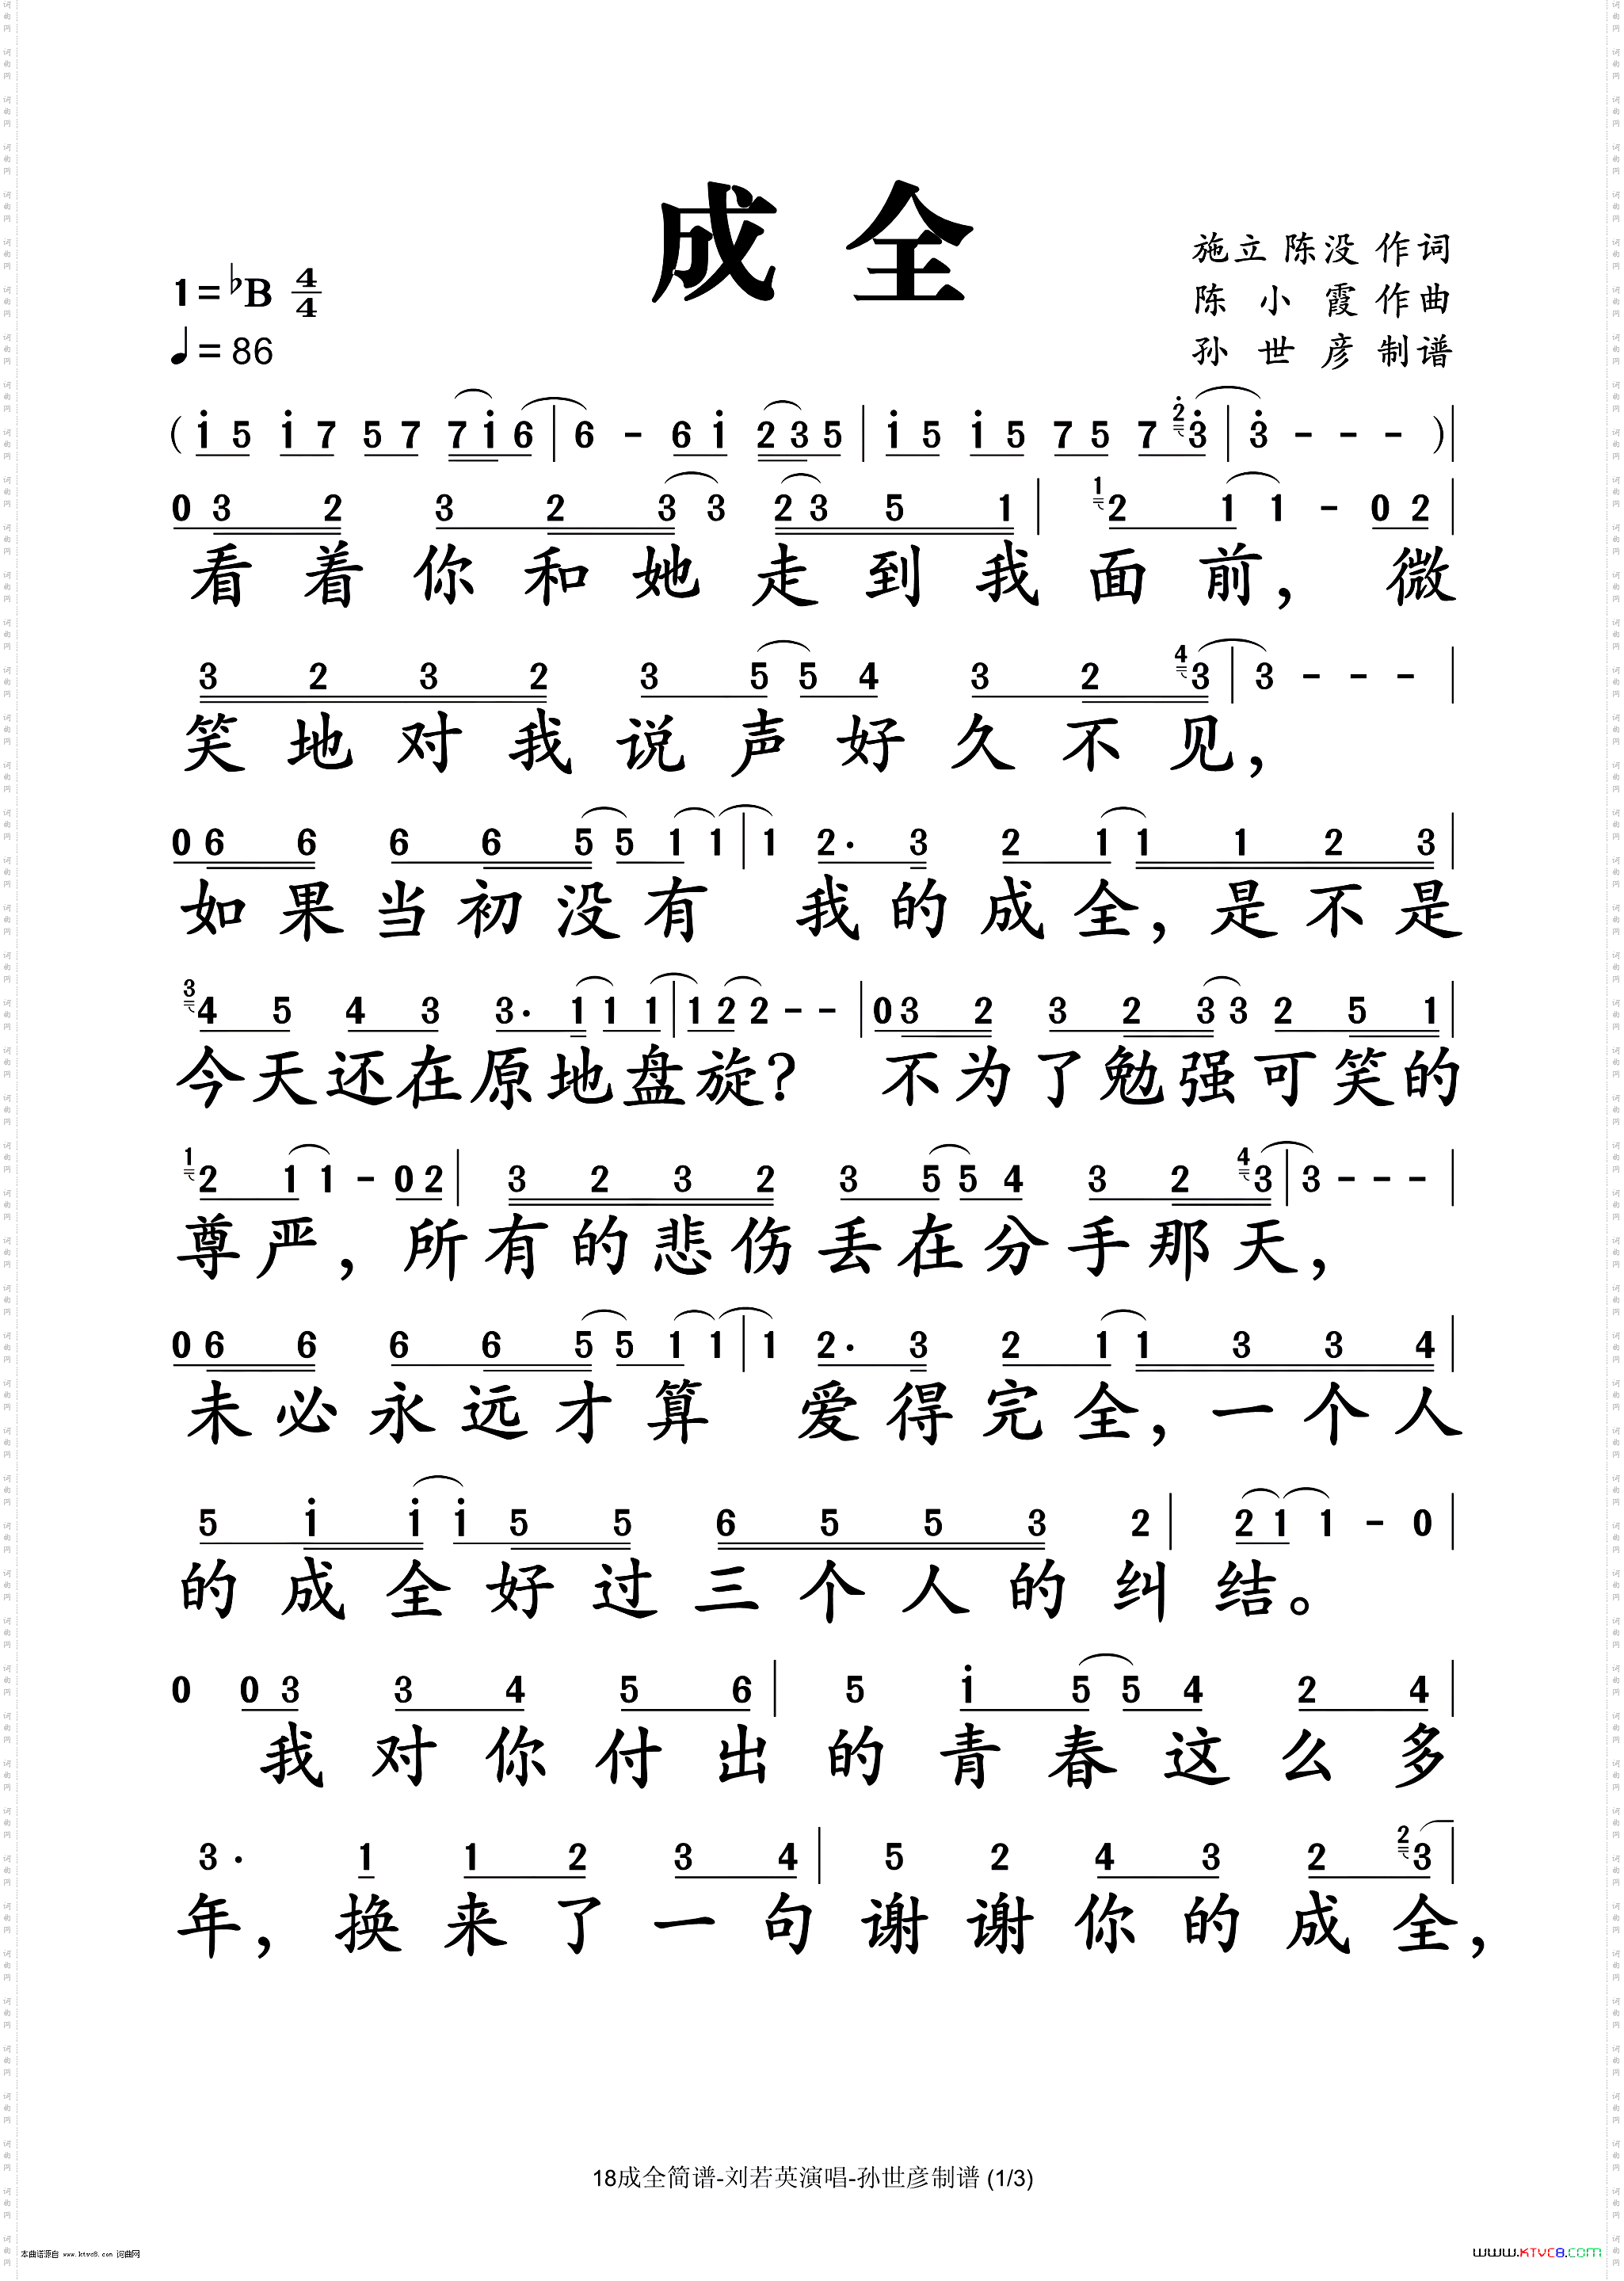 成全
1=♭B 4/4
♩=86
施立 陈没 作词
陈小霞 作曲
孙世彦 制谱
( i 5 i 7 5 7 7 i 6 | 6 - 6 i 2 3 5 | i 5 i 5 7 5 7 2 3 | 3 - - - ) |
0 3 2 3 2 3 3 2 3 5 1 | 1 2 1 1 - 0 2 |
看着你和她走到我面前，微
3 2 3 2 3 5 5 4 3 2 4 3 | 3 - - - |
笑地对我说声好久不见，
0 6 6 6 6 5 5 1 1 | 1 2· 3 2 1 1 1 2 3 |
如果当初没有 我的成全，是不是
3 4 5 4 3 3· 1 1 1 | 1 2 2 - - | 0 3 2 3 2 3 3 2 5 1 |
今天还在原地盘旋？ 不为了勉强可笑的
1 2 1 1 - 0 2 | 3 2 3 2 3 5 5 4 3 2 4 3 | 3 - - - |
尊严，所有的悲伤丢在分手那天，
0 6 6 6 6 5 5 1 1 | 1 2· 3 2 1 1 3 3 4 |
未必永远才算 爱得完全，一个人
5 i i i 5 5 6 5 5 3 2 | 2 1 1 - 0 |
的成全好过三个人的纠结。
0 0 3 3 4 5 6 | 5 i 5 5 4 2 4 |
我对你付出的青春这么多
3· 1 1 2 3 4 | 5 2 4 3 2 2 3 |
年，换来了一句谢谢你的成全，
18成全简谱-刘若英演唱-孙世彦制谱 (1/3)
本曲谱源自 www.ktvc8.com 词曲网
www.KTVC8.com